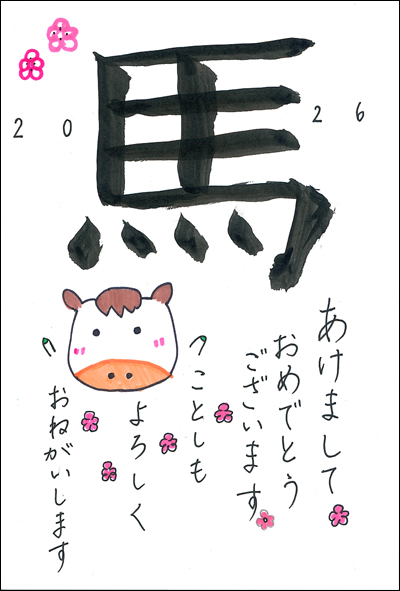 馬
2026
あけまして
おめでとう
ございます
ことしも
よろしく
おねがいします